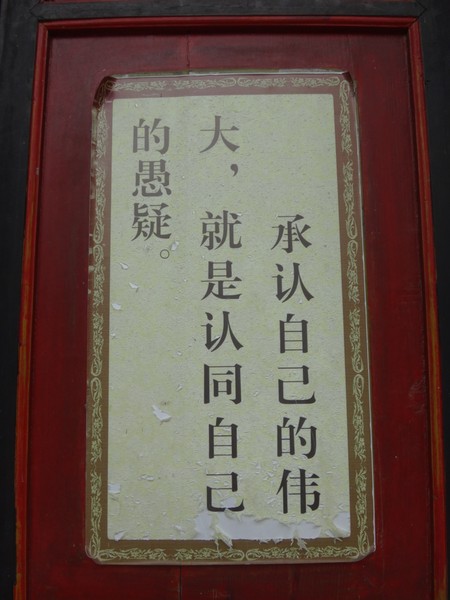 承认自己的伟
大，就是认同自己
的愚疑。